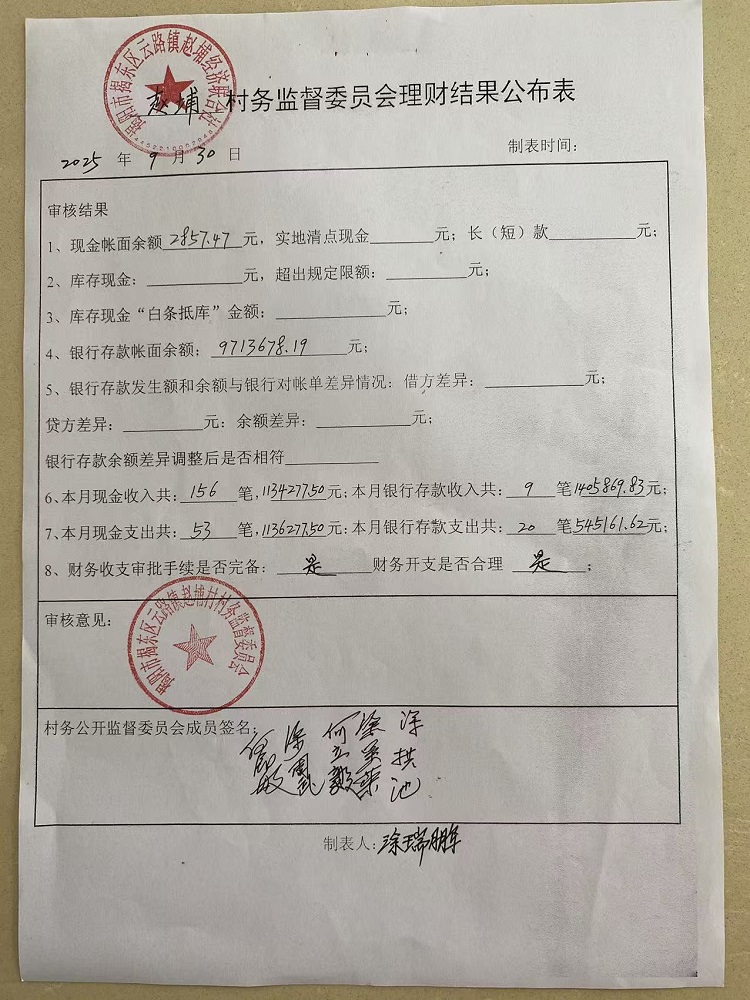 揭阳市揭东区云路镇赵埔经济联合社
赵埔 村务监督委员会理财结果公布表
2025 年 9 月 30 日 制表时间:
审核结果
1、现金帐面余额 2857.47 元，实地清点现金________元；长（短）款________元；
2、库存现金：________元，超出规定限额：________元；
3、库存现金“白条抵库”金额：________元；
4、银行存款帐面余额：9713678.19 元；
5、银行存款发生额和余额与银行对帐单差异情况：借方差异：________元；
贷方差异：________元：余额差异：________元；
银行存款余额差异调整后是否相符________
6、本月现金收入共：156 笔，1134277.50元；本月银行存款收入共：9 笔1405869.83元；
7、本月现金支出共：53 笔，1136277.50元；本月银行存款支出共：20 笔545161.62元；
8、财务收支审批手续是否完备：是 财务开支是否合理 是；
审核意见：
揭阳市揭东区云路镇赵埔村村务监督委员会
村务公开监督委员会成员签名：
制表人：涂瑞鹏